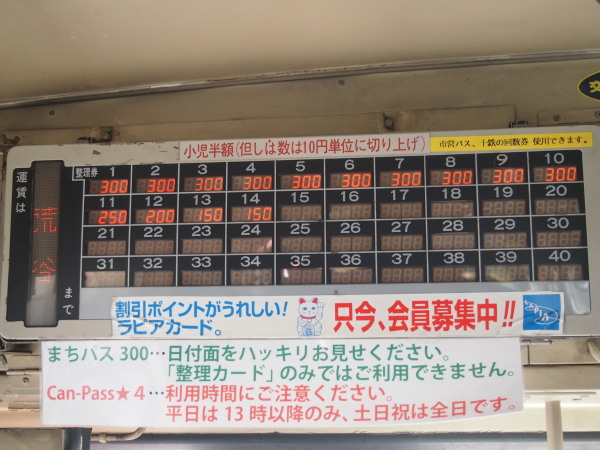 小児半額(但しは数は10円単位に切り上げ)
市営バス、十鉄の回数券 使用できます。
運賃は
まで
整理券 1 2 3 4 5 6 7 8 9 10
300 300 300 300 300 300 300 300 300 300
11 12 13 14 15 16 17 18 19 20
250 200 150 150
21 22 23 24 25 26 27 28 29 30
31 32 33 34 35 36 37 38 39 40
割引ポイントがうれしい!
ラピアカード。
只今、会員募集中!!
まちパス300…日付面をハッキリお見せください。
「整理カード」のみではご利用できません。
Can-Pass★4…利用時間にご注意ください。
平日は13時以降のみ、土日祝は全日です。